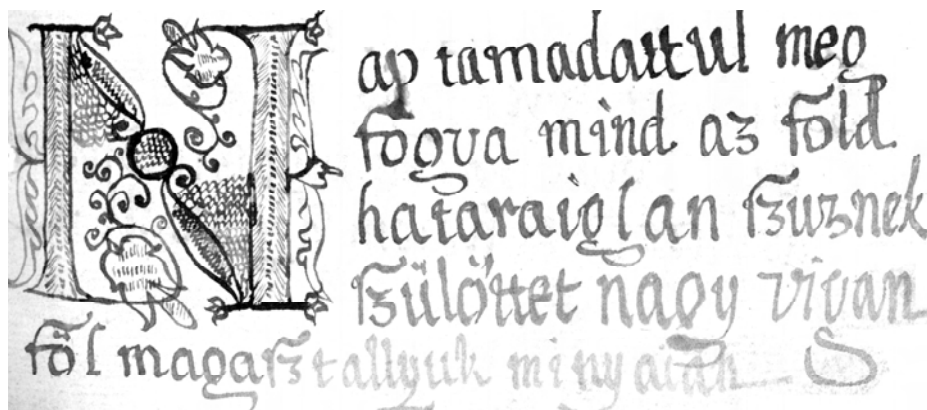 Nap tamadattul meg
fogva mind az föld
hataraiglan szuznek
szülöttet nagy vivan
föl magasztallyuk minyaian